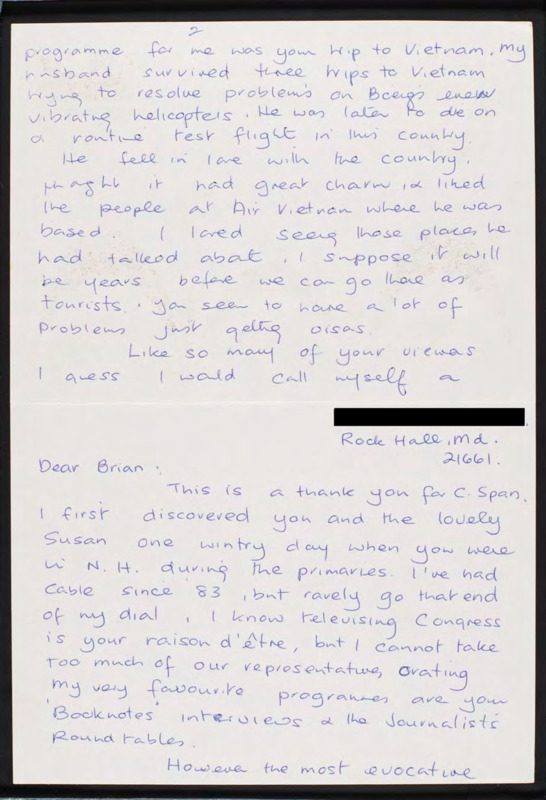 2
programme for me was your trip to Vietnam. My
husband survived three trips to Vietnam
trying to resolve problems on Boeing's ever
vibrating helicopters. He was later to die on
a routine test flight in this country.
He fell in love with the country,
thought it had great charm, & liked
the people at Air Vietnam where he was
based. I loved seeing those places he
had talked about, I suppose it will
be years before we can go there as
tourists. You seem to have a lot of
problems just getting visas.
Like so many of your viewers
I guess I would call myself a
Rock Hall, Md.
21661.
Dear Brian,
This is a thank you for C. Span.
I first discovered you and the lovely
Susan one wintry day when you were
in N. H. during the primaries. I've had
Cable since '83, but rarely go that end
of my dial, I know televising Congress
is your raison d'être, but I cannot take
too much of our representatives orating
My very favourite programmes are your
'Booknotes' interviews & the Journalists'
Roundtables.
However the most evocative